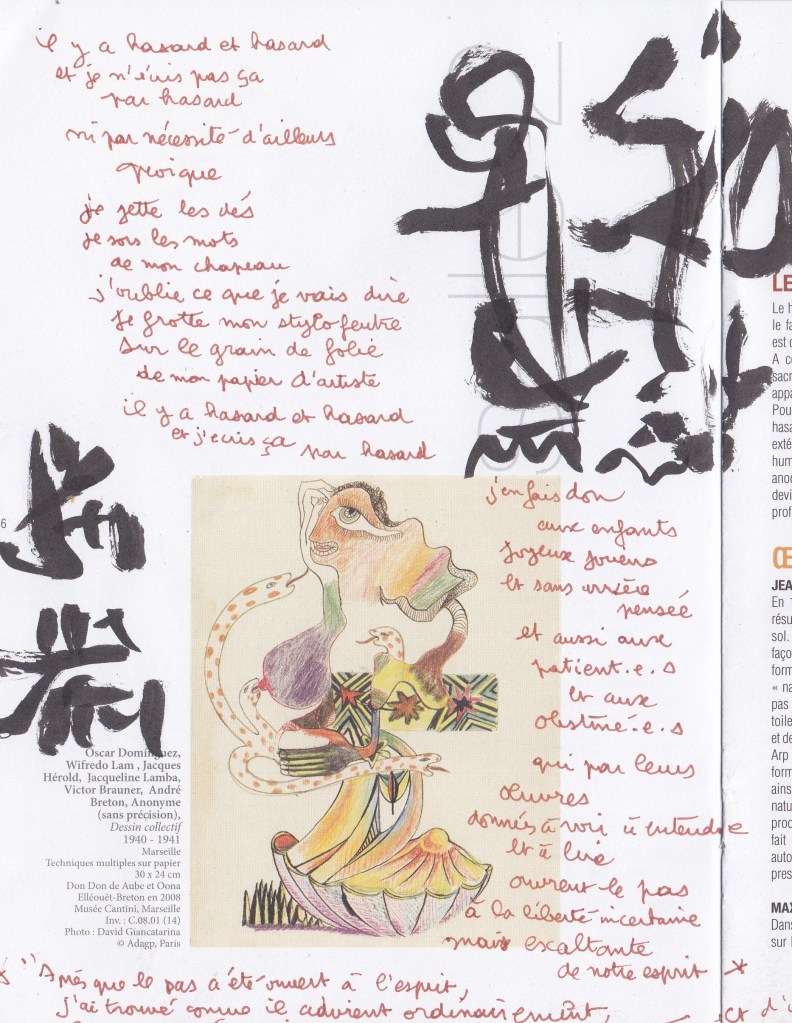 il y a hasard et hasard
et je n'écris pas ça
par hasard
ni par nécessité d'ailleurs
quoique
je jette les dés
je sors les mots
de mon chapeau
j'oublie ce que je vais dire
je frotte mon stylo feutre
sur le grain de folie
de mon papier d'artiste
il y a hasard et hasard
et j'écris ça par hasard
j'en fais don
aux enfants
joyeux joueurs
et sans arrière
pensée
et aussi aux
patient.e.s
et aux
obstiné.e.s
qui par leurs
œuvres
donnés à voir à entendre
et à lire
ouvrent le pas
à la liberté incertaine
mais exaltante
de notre esprit *
* "Après que le pas a été ouvert à l'esprit,
j'ai trouvé comme il advient ordinairement,
6
Oscar Domínguez,
Wifredo Lam , Jacques
Hérold, Jacqueline Lamba,
Victor Brauner, André
Breton, Anonyme
(sans précision),
Dessin collectif
1940 - 1941
Marseille
Techniques multiples sur papier
30 x 24 cm
Don Don de Aube et Oona
Elléouët-Breton en 2008
Musée Cantini, Marseille
Inv. : C.08.01 (14)
Photo : David Giancatarina
© Adagp, Paris
salle 2
LE
Le h
le fa
est c
A c
sacr
appa
Pou
hasa
exté
hum
anoc
devi
prof
Œ
JEA
En 1
résu
sol.
faço
form
« na
pas
toile
et de
Arp
form
ains
natu
proc
fait
auto
pres
MAX
Dans
sur l